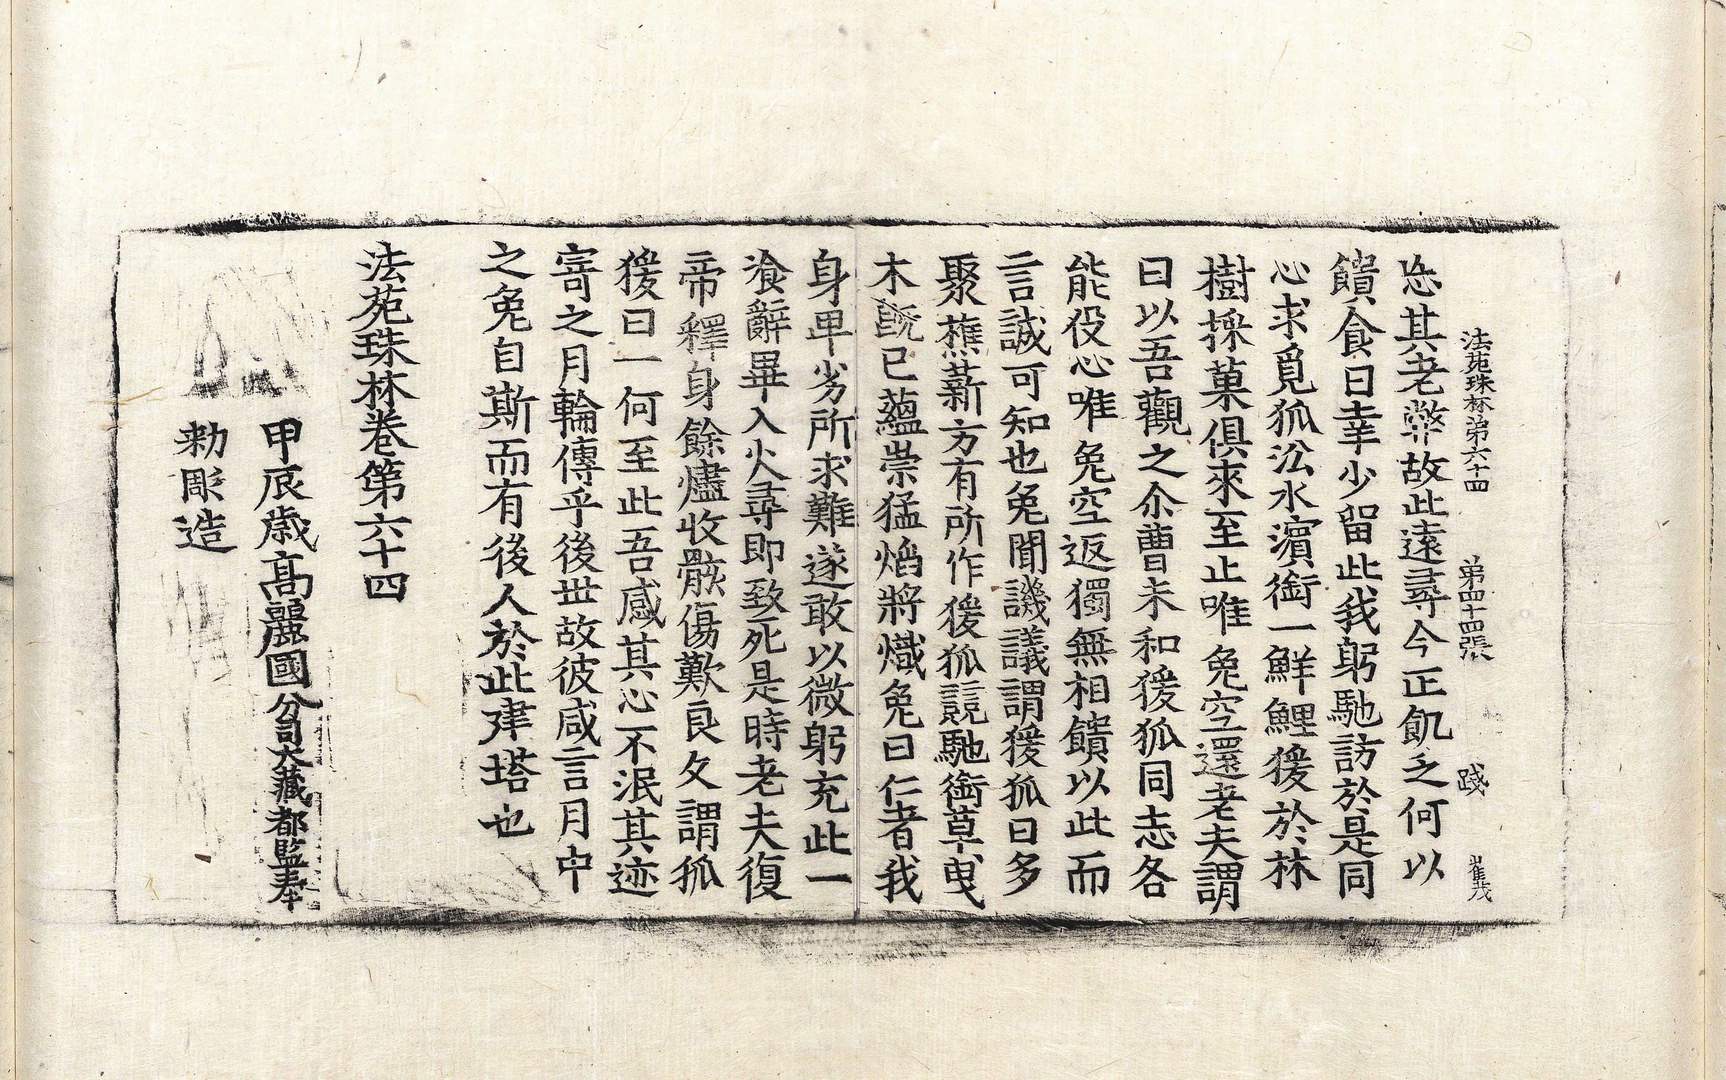 法苑珠林第六十四 第四十四張 踐 崔茂
恣其老弊故此遠尋今正飢乏何以
饋食曰幸少留此我躬馳訪於是同
心求覓狐沿水濱銜一鮮鯉猨於林
樹採菓俱來至止唯兔空還老夫謂
曰以吾觀之尒曹未和猨狐同志各
能役心唯兔空返獨無相饋以此而
言誠可知也兔聞譏議謂猨狐曰多
聚樵薪方有所作猨狐競馳銜草曳
木既已蘊崇猛焰將熾兔曰仁者我
身卑劣所求難遂敢以微躬充此一
飡辭畢入火尋即致死是時老夫復
帝釋身餘燼收骸傷歎良久謂狐
猨曰一何至此吾感其心不泯其迹
寄之月輪傳乎後世故彼咸言月中
之兔自斯而有後人於此建塔也
法苑珠林卷第六十四
甲辰歲高麗國分司大藏都監奉
勅彫造